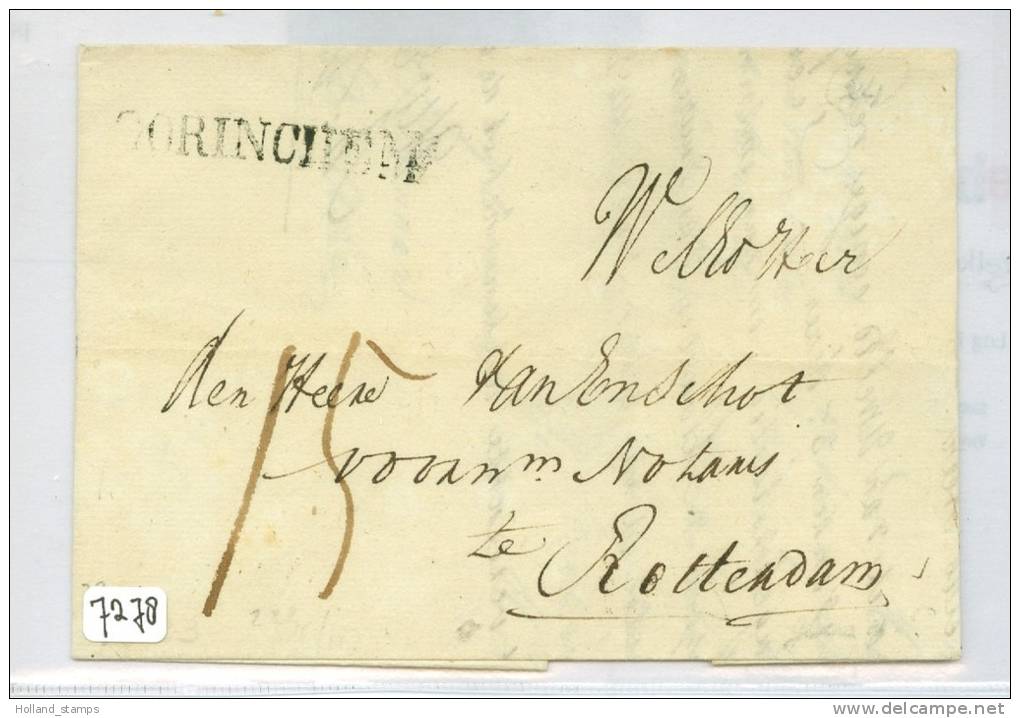 GORINCHEM
Wel Ed Heer
den Heere Van Enschot
voornm Notaris
te
Rotterdam
15
7278
Holland_stamps
www.delcampe.net